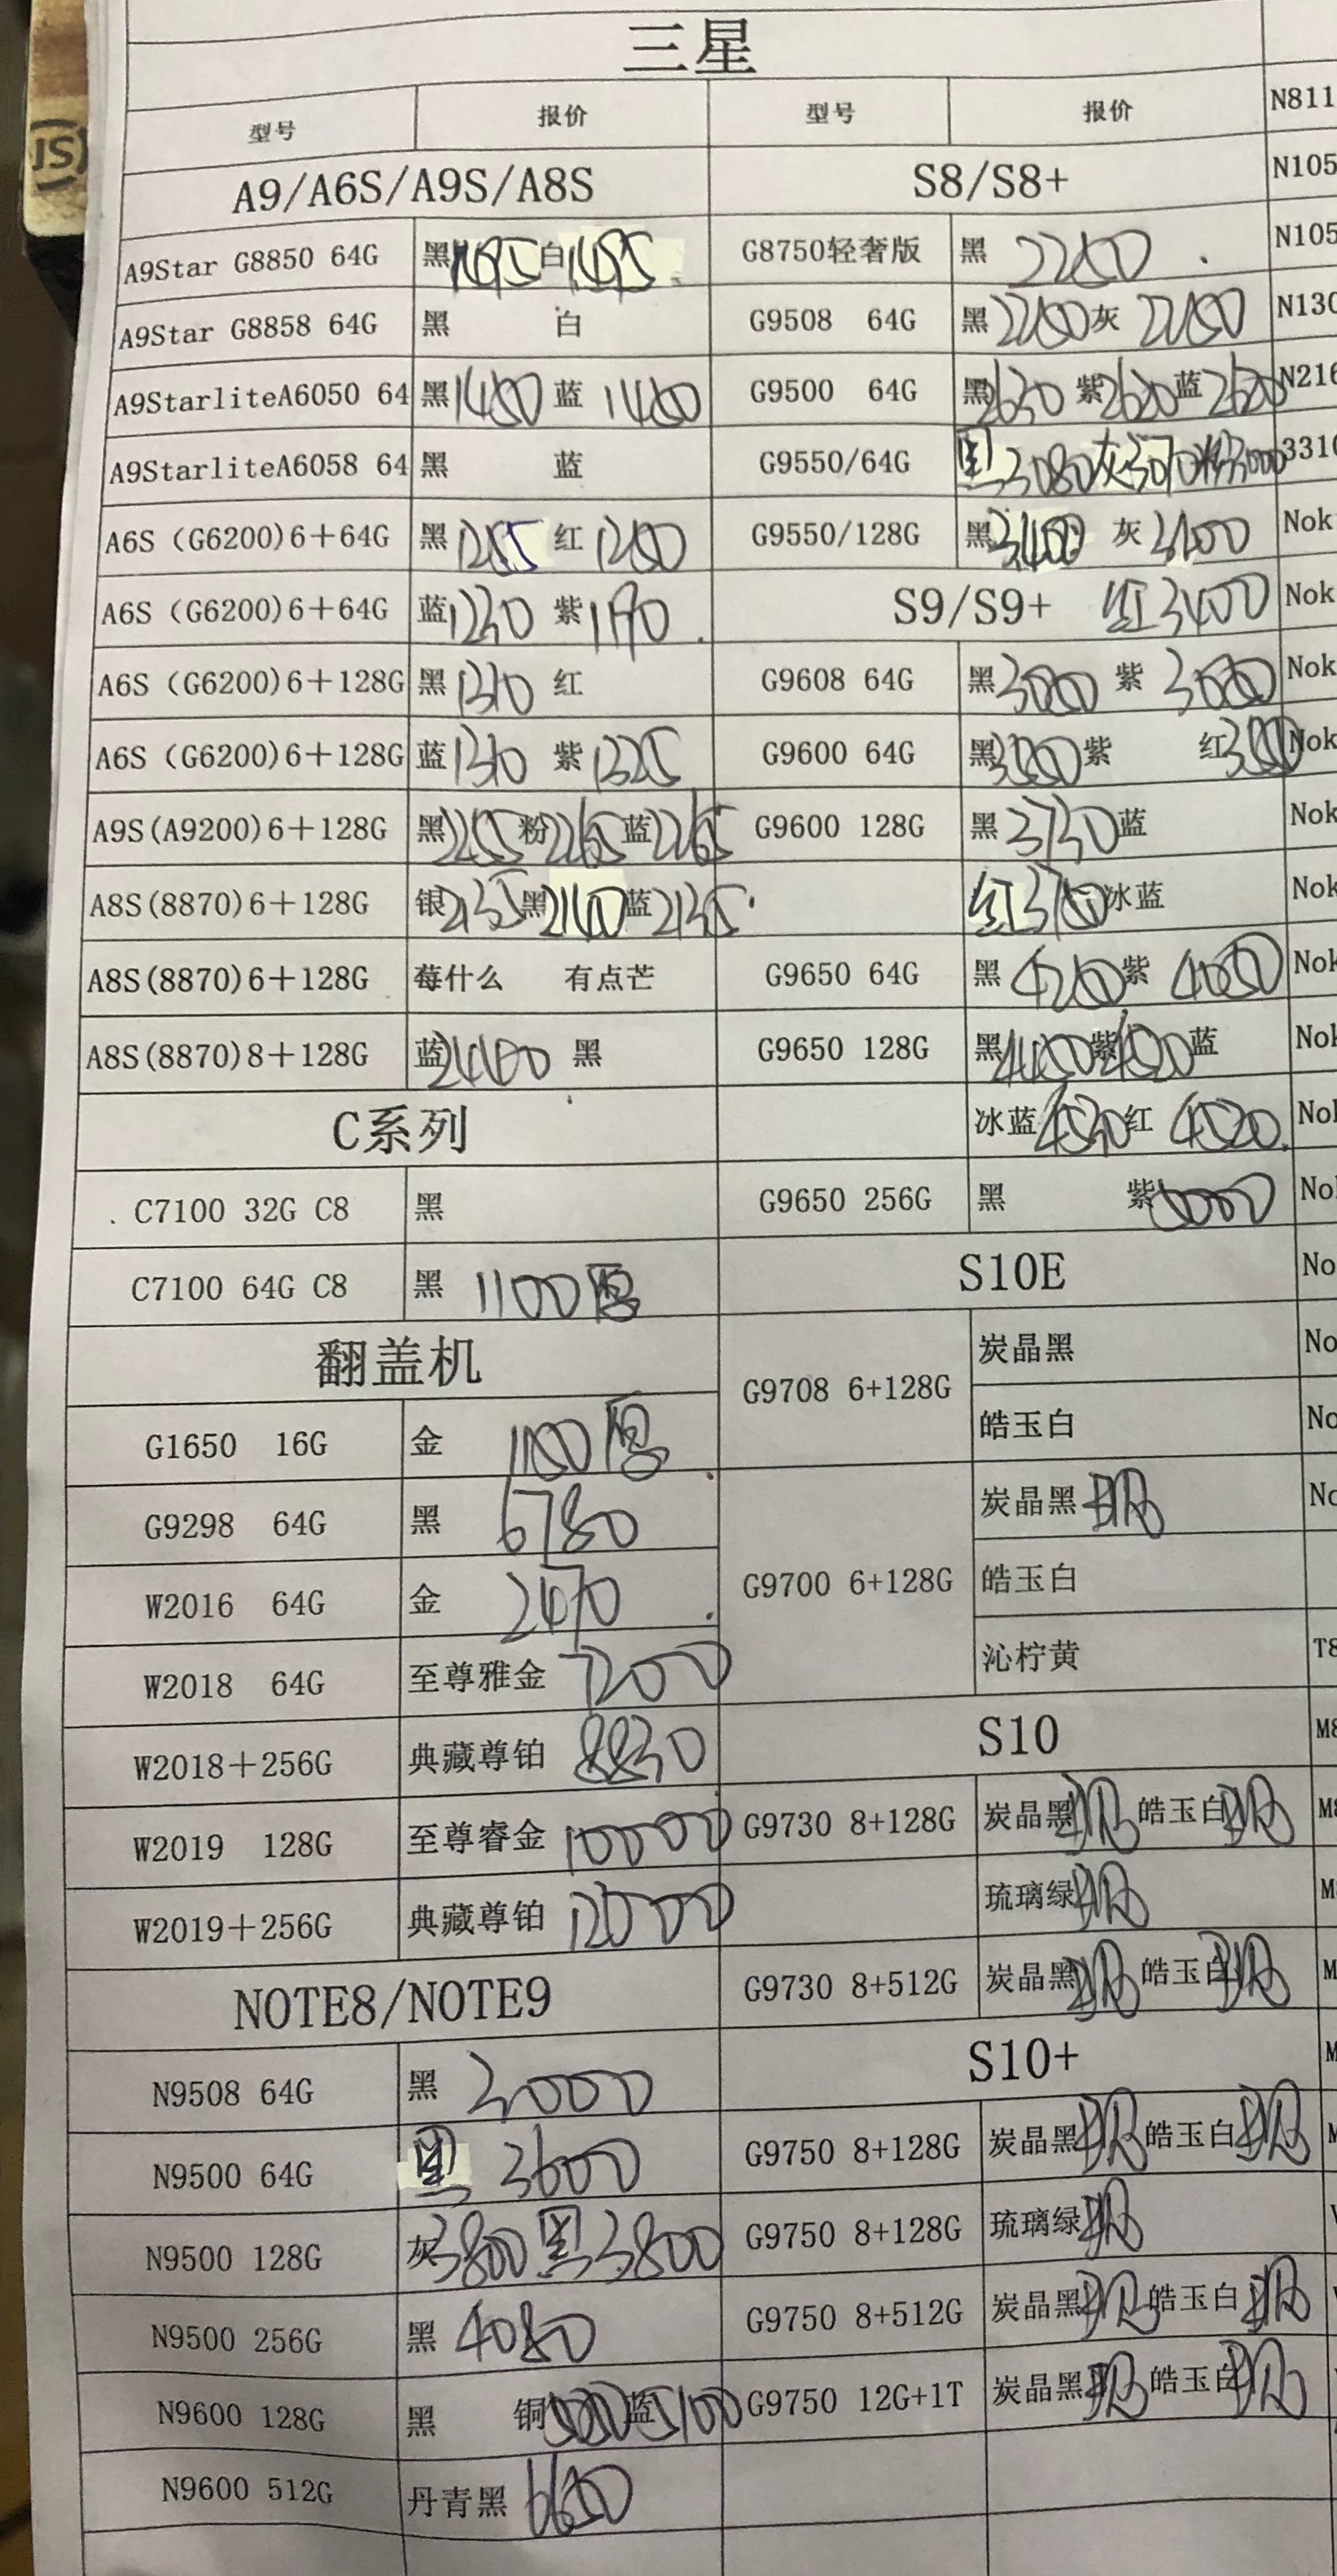 三星
型号 报价 型号 报价 N811
A9/A6S/A9S/A8S S8/S8+ N105
A9Star G8850 64G 黑1495 白1495 G8750轻奢版 黑 2250 N105
A9Star G8858 64G 黑 白 G9508 64G 黑2250 灰 2250 N130
A9StarliteA6050 64 黑1450 蓝 1460 G9500 64G 黑2630 紫2620 蓝2620 N216
A9StarliteA6058 64 黑 蓝 G9550/64G 黑3080 灰3070 粉3000 3310
A6S（G6200)6+64G 黑1255 红1250 G9550/128G 黑3400 灰3400 Nok
A6S（G6200)6+64G 蓝1230 紫1190 S9/S9+ 红3400 Nok
A6S（G6200)6+128G 黑1310 红 G9608 64G 黑3000 紫 3000 Nok
A6S（G6200)6+128G 蓝1310 紫1325 G9600 64G 黑 紫 红 Nok
A9S(A9200)6+128G 黑2255 粉2265 蓝2265 G9600 128G 黑3730 蓝 Nok
A8S(8870)6+128G 银2135 黑2140 蓝2135 红 冰蓝 Nok
A8S(8870)6+128G 莓什么 有点芒 G9650 64G 黑 4200 紫 4050 Nok
A8S(8870)8+128G 蓝2400 黑 G9650 128G 黑4450 紫 蓝 Nok
C系列 冰蓝 红 4520 Nok
C7100 32G C8 黑 G9650 256G 黑 紫5000 Nok
C7100 64G C8 黑 1100 S10E No
翻盖机 G9708 6+128G 炭晶黑 No
G1650 16G 金 1100 皓玉白 No
G9298 64G 黑 6780 G9700 6+128G 炭晶黑 No
W2016 64G 金 2470 皓玉白
W2018 64G 至尊雅金 7200 沁柠黄 T8
W2018+256G 典藏尊铂 8830 S10 M8
W2019 128G 至尊睿金 10000 G9730 8+128G 炭晶黑 皓玉白 M8
W2019+256G 典藏尊铂 12000 琉璃绿 M
NOTE8/NOTE9 G9730 8+512G 炭晶黑 皓玉白 M
N9508 64G 黑 3000 S10+ M
N9500 64G 黑 3600 G9750 8+128G 炭晶黑 皓玉白 M
N9500 128G 灰3800 黑3800 G9750 8+128G 琉璃绿
N9500 256G 黑 4080 G9750 8+512G 炭晶黑 皓玉白
N9600 128G 黑 铜 蓝5100 G9750 12G+1T 炭晶黑 皓玉白
N9600 512G 丹青黑 6650